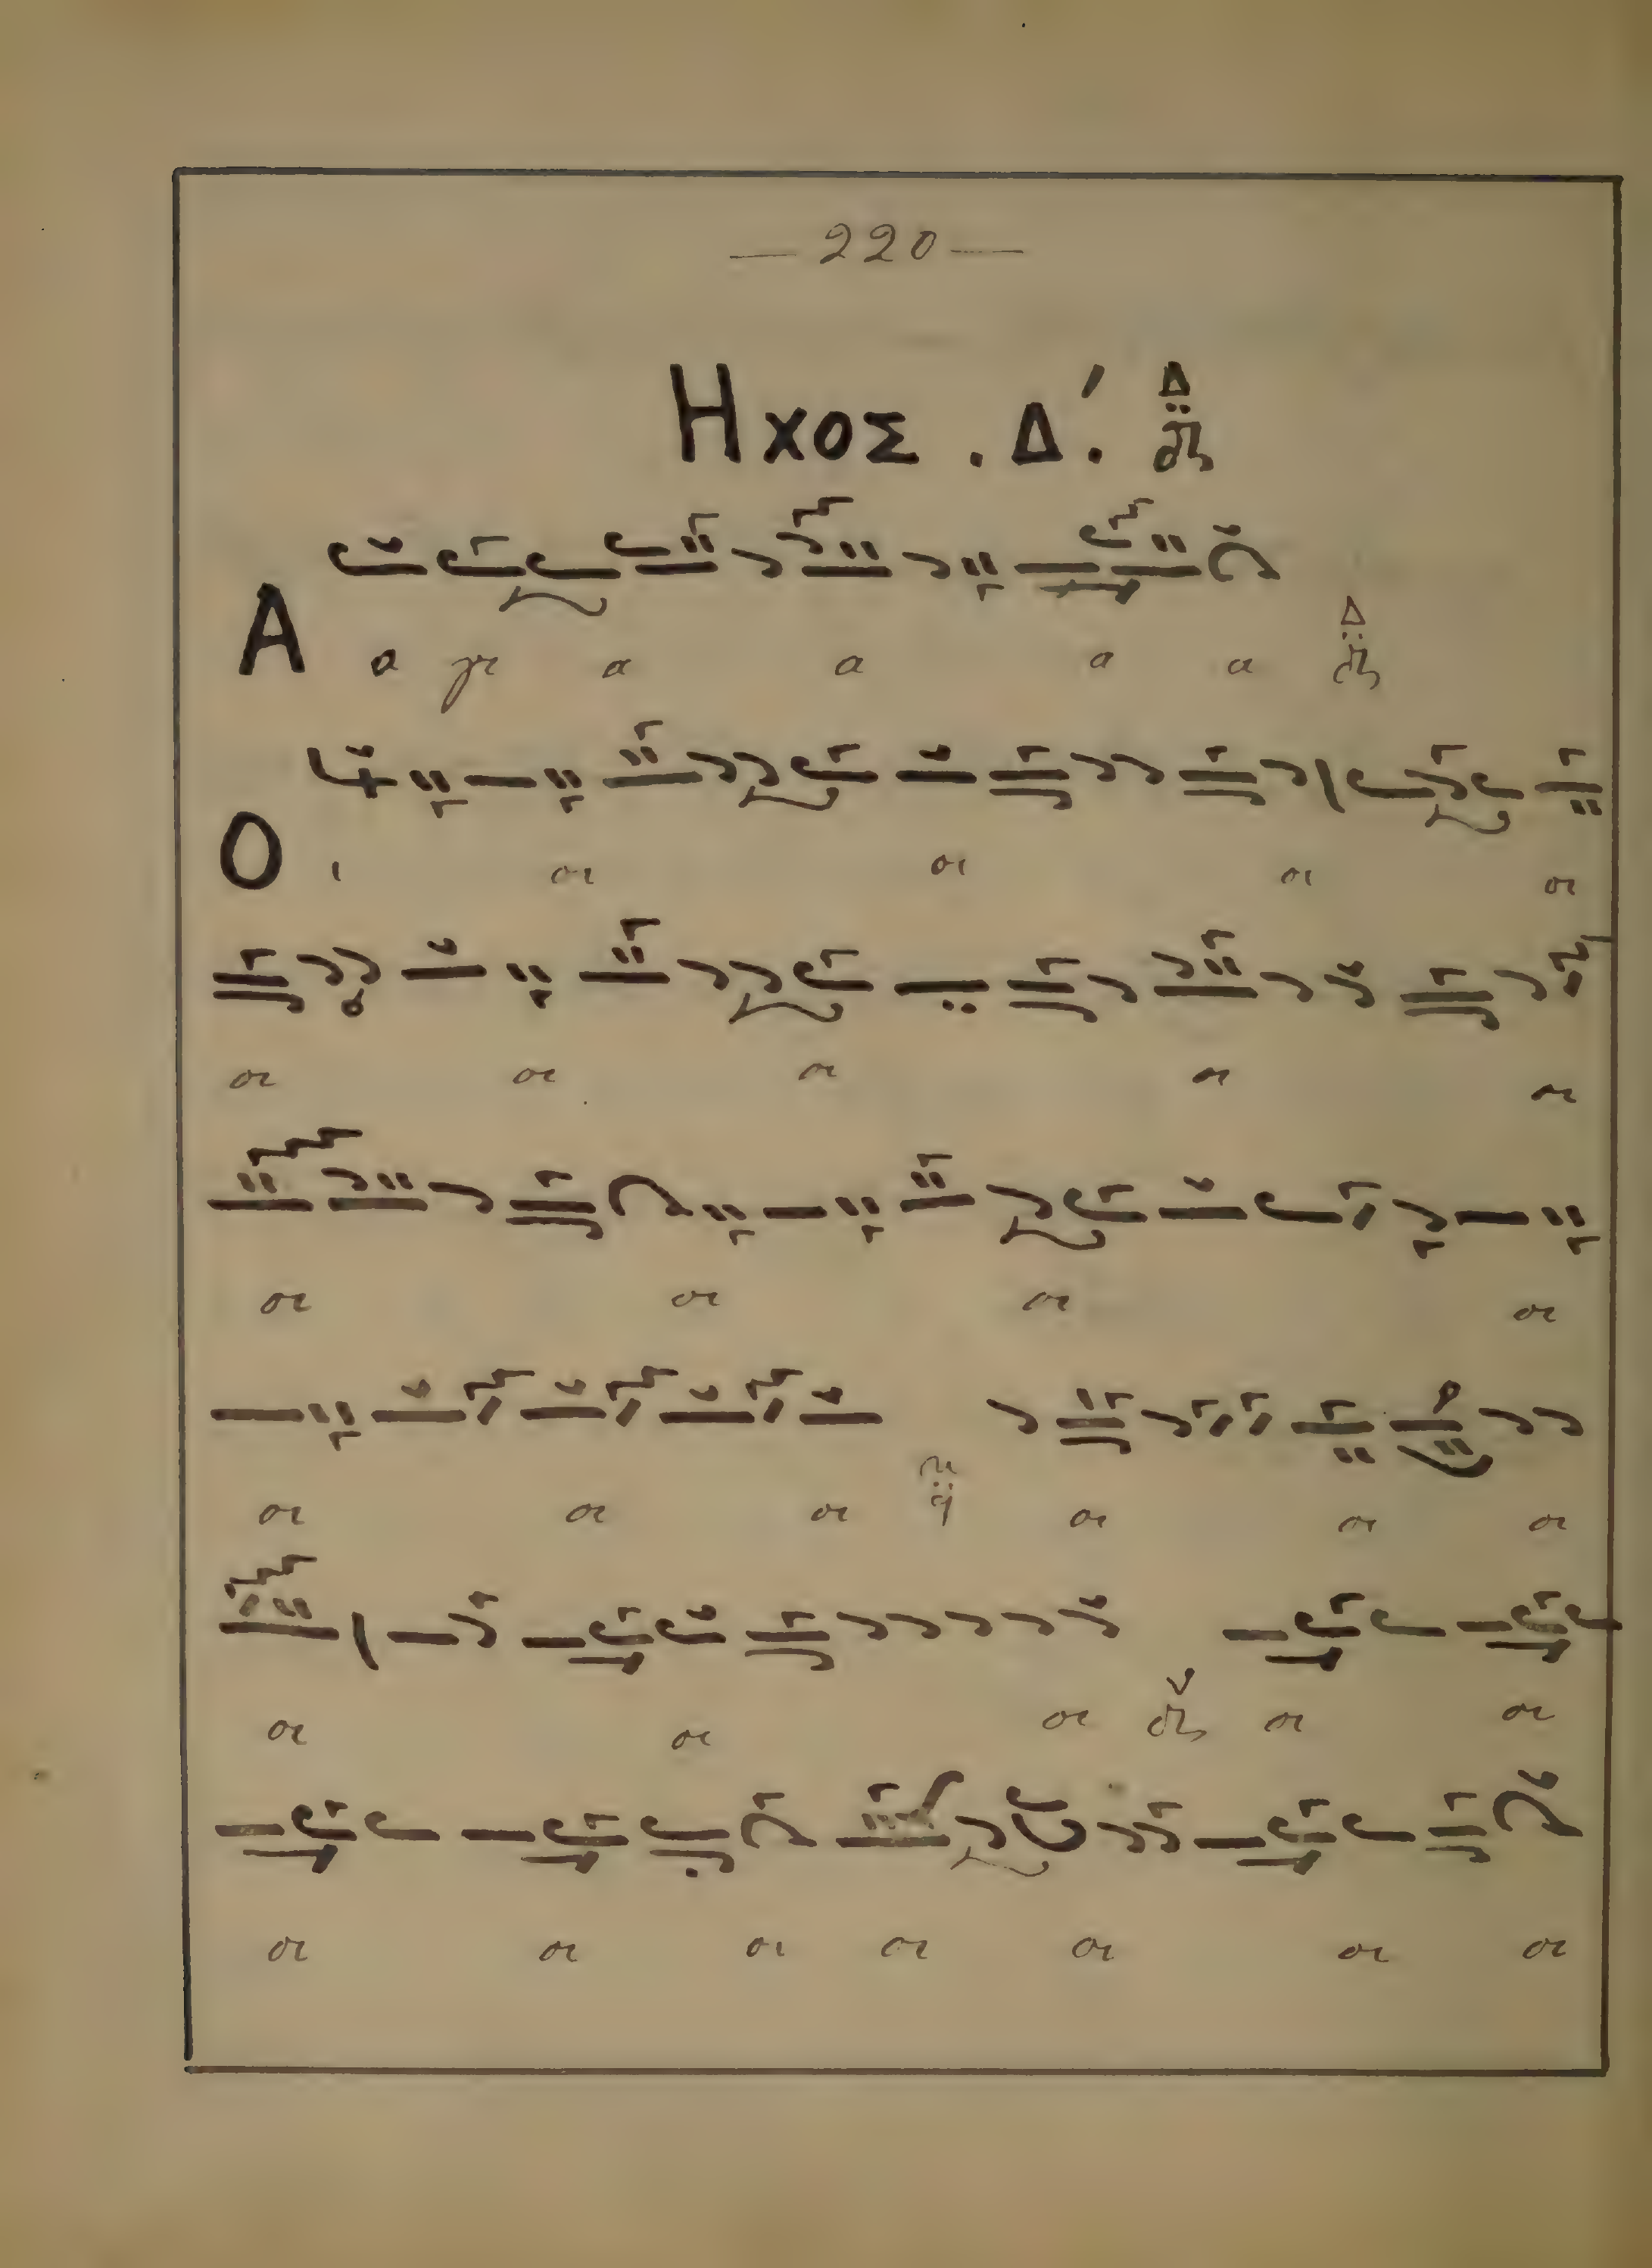 — 220 —
Ηχος . Δ΄.
Α α γι α α α α Δ
Ο ι οι οι οι οι
οι οι οι οι οι
οι οι οι οι
οι οι οι οι οι οι
οι οι οι οι οι
οι οι οι οι οι οι οι